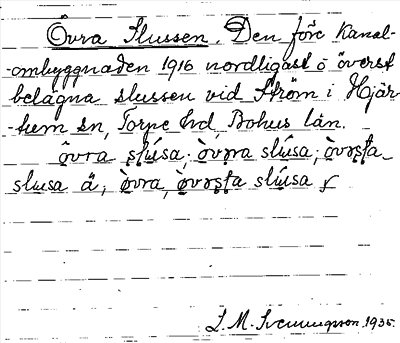 Övra Slussen. Den före Kanal-
-ombyggnaden 1916 nordligast o överst
belägna slussen vid Ström i Hjär-
-tum sn, Torpe hd, Bohus län.
övra slúsa; òvra slúsa; òvərsta
slusa ä; òvra, òvərsta slúsa
S. M. Svenungsson 1935.